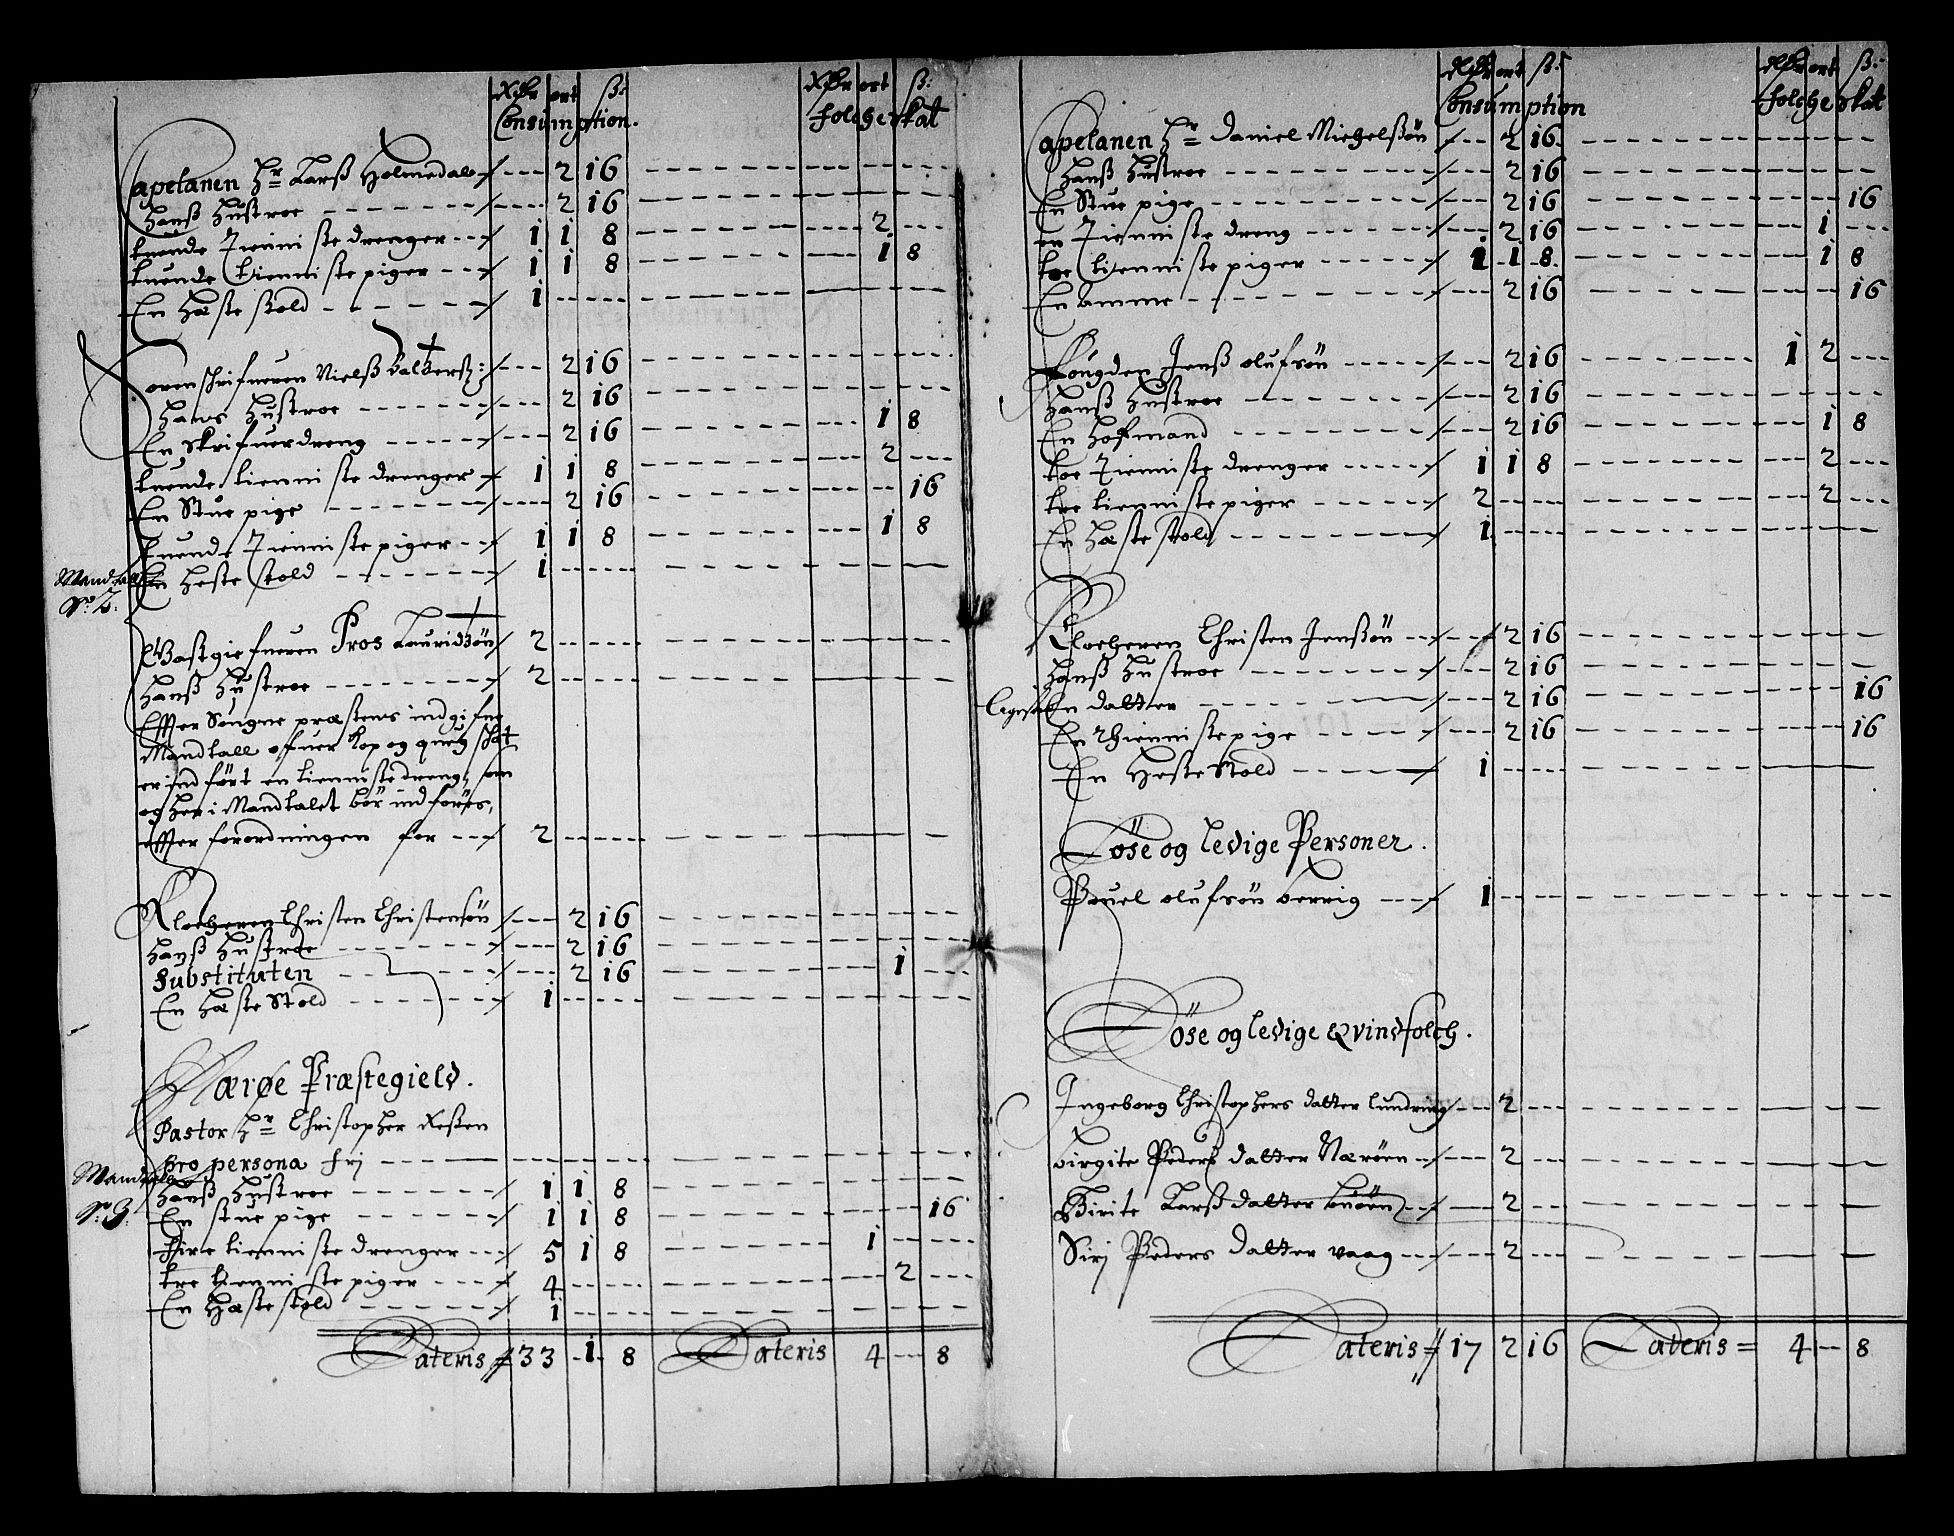 Rdr ort ß: Rdr ort ß:
Consumption. folcheskat
Capelanen Hr Larß Holmedal 2 16
Hanß Hustroe 2 16
tuende Tienniste drenger 1 1 8 2
tuende tienniste piger 1 1 8 1 8
En Hæste stold 1
Sorenschrifueren Nielß Baltersß: 2 16
Hans Hustroe 2 16
En Skrifuerdreng 2 16 1 8
tuende tienniste drenger 1 1 8 2
En Stue pige 2 16 16
tuende Tienniste piger 1 1 8 1 8
En Heste stold 1
Mandtall
No. 2.
Gastgiefueren Pros Lauridßøn 2
Hanß Hustroe 2
Effter Sougne præstens indgifne
Mandtall ofuer kop og queg schat
er indført en tienniste dreng, som
og her i Mandtalet bør indføres,
effter forordningen for 2
Klocheren Christen Christensøn 2 16
Hanß Hustroe 2 16
Substituten 2 16 1
En Hæste Stold 1
Nærøe Præstegield.
Pastor Hr Christopher Resten
pro persona frj
Mandtall
No. 3.
Hanß Hustroe 1 1 8
En stue pige 1 1 8 16
fire tienniste drenger 5 1 8 1
tre tienniste piger 4 2
En Hæste stold 1
Lateris 33 1 8 Lateris 4 8
Rdr ort ß: Rdr ort ß:
Consumption folcheskat
Capelanen Hr Daniel Michelßøn 2 16
Hanß Hustroe 2 16
En Stue pige 2 16 16
en Tienniste dreng 2 16 1
toe tienniste piger 1 1 8 1 8
En amme 2 16 16
Fougden Jenß olufsøn 2 16 1 2
Hanß Hustroe 2 16
En Hoffmand 2 16 1 8
toe Tienniste drenger 1 1 8 2
tre tienniste piger 2 2
En Hæste stold 1
Klocheren Christen Jenßøn 2 16
Hanß Hustroe 2 16
En datter 2 16 16
En Thienniste pige 2 16 16
En Heste Stold 1
Løse og ledige Personer.
Pouel olufsøn berrig 1
Løse og ledige Qvindfolch.
Ingeborg Christophers datter lundring 2
birgite Peders datter Nærøen 2
Birite Larß datter buøen 2
Sirj Peders datter vaag 2
Lateris 17 2 16 Lateris 4 8